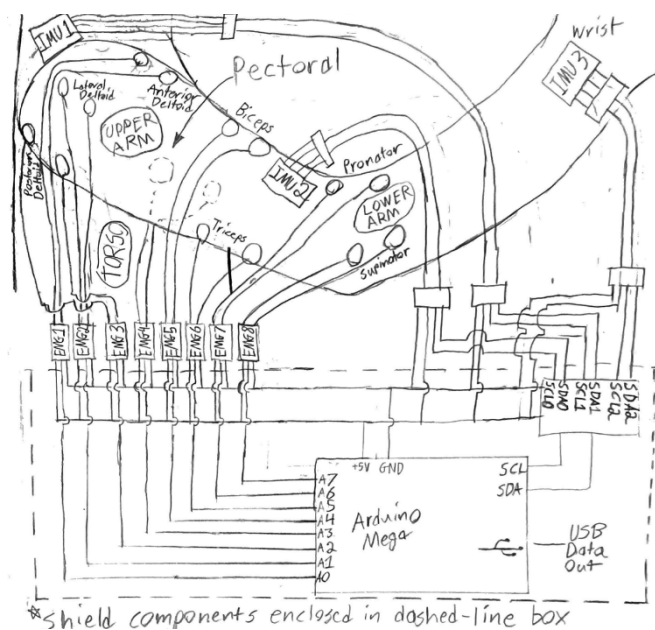 IMU1
Wrist
IMU3
Pectoral
Lateral
Deltoid
Anterior
Deltoid
Biceps
UPPER
ARM
IMU2
Pronator
Posterior
Deltoid
LOWER
ARM
Triceps
Supinator
TORSO
EMG1
EMG2
EMG3
EMG4
EMG5
EMG6
EMG7
EMG8
SCL0
SDA0
SCL1
SDA1
SCL2
SDA2
+5V GND
SCL
SDA
A7
A6
A5
A4
A3
A2
A1
A0
Arduino
Mega
USB
Data
Out
*Shield components enclosed in dashed-line box